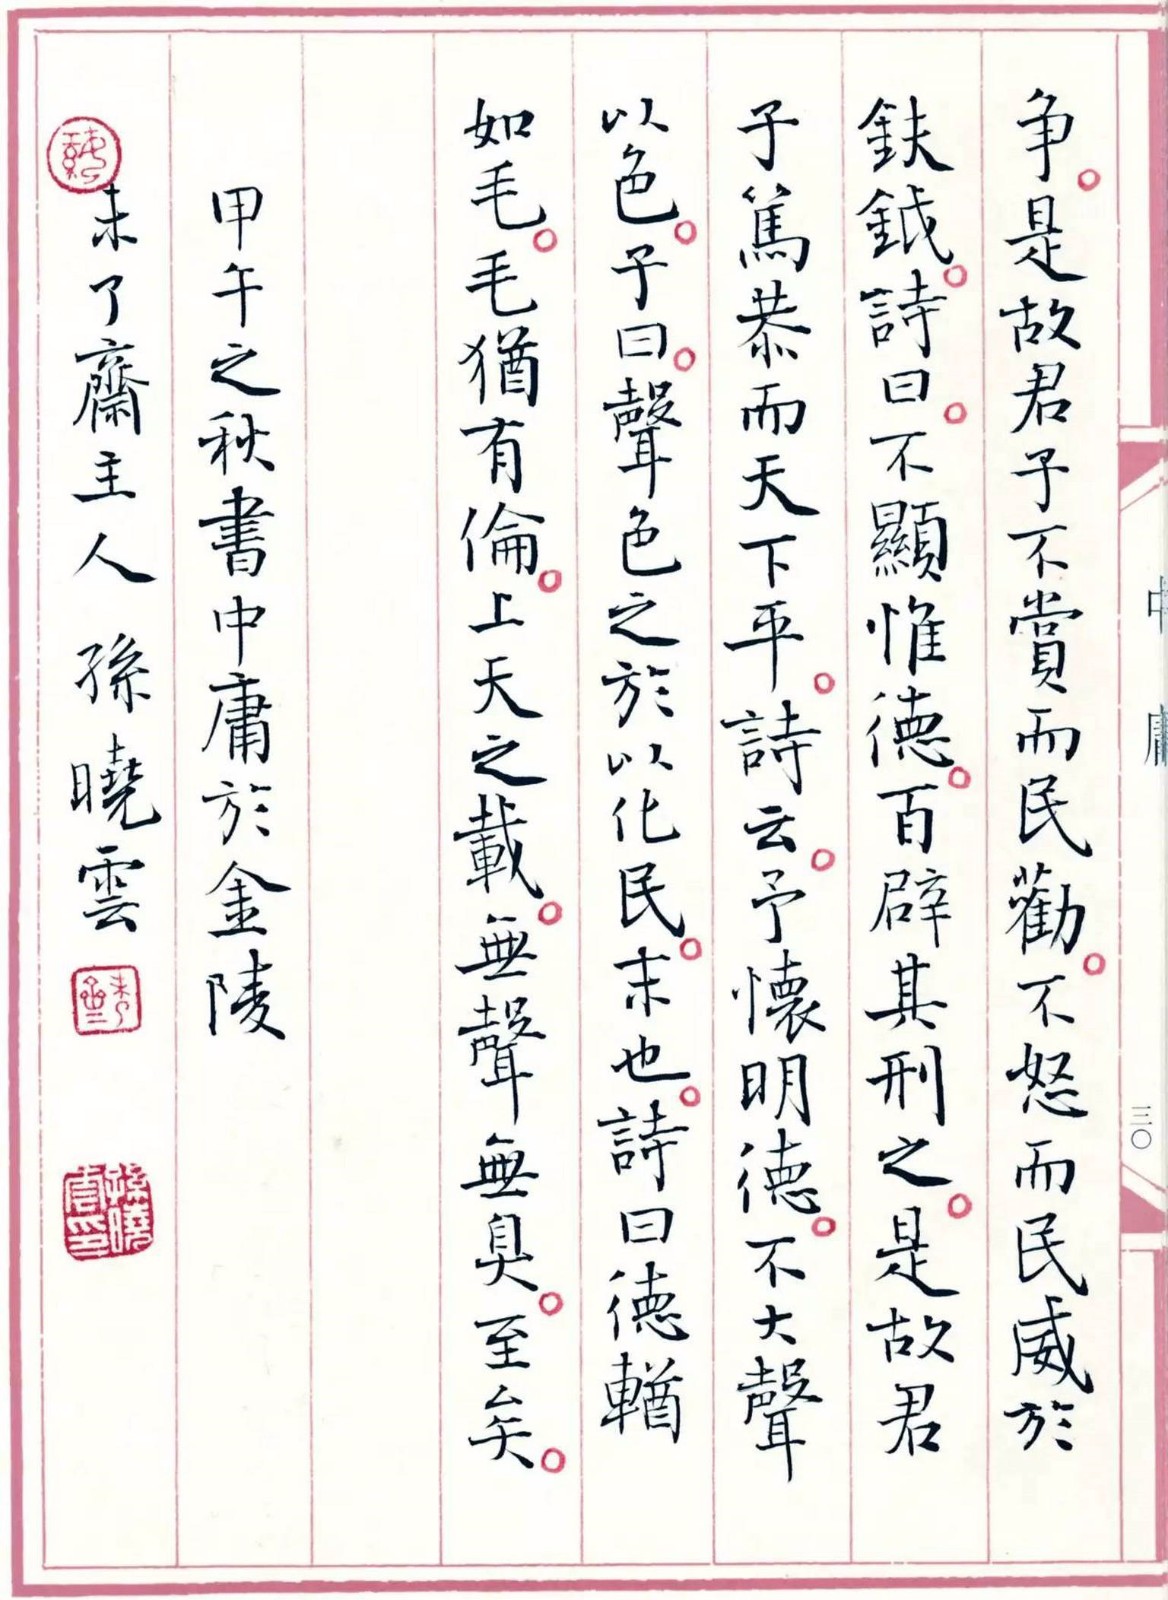 中庸
三〇
争。是故君子不賞而民勸。不怒而民威於
鈇鉞。詩曰。不顯惟徳。百辟其刑之。是故君
子篤恭而天下平。詩云。予懷明徳。不大聲
以色。子曰。聲色之於以化民。末也。詩曰徳輶
如毛。毛猶有倫。上天之載。無聲無臭。至矣。
甲午之秋書中庸於金陵
未了齋主人 孫曉雲
孫曉雲印